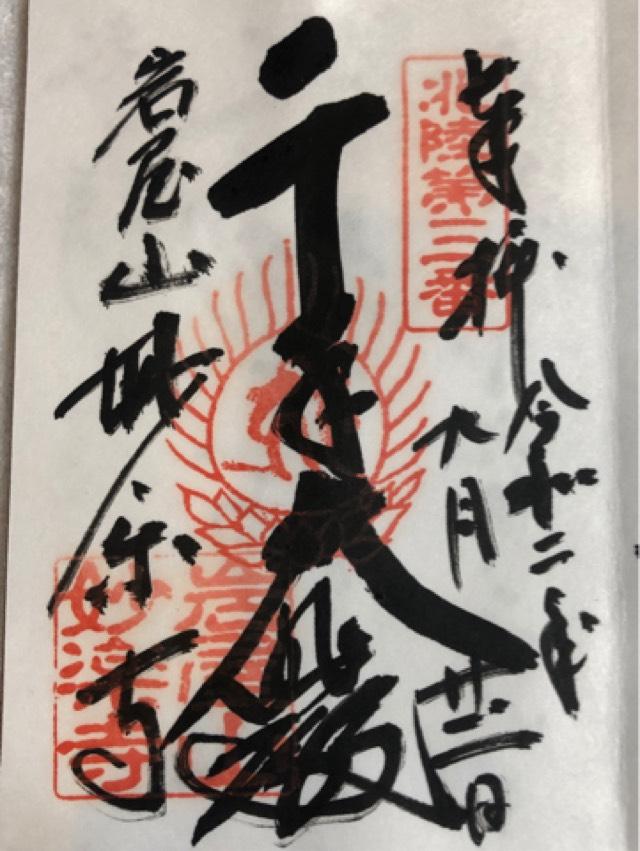 奉拝
令和二年
九月廿一日
北陸第三番
千手大悲殿
岩屋山
妙楽寺
岩屋山
妙楽寺